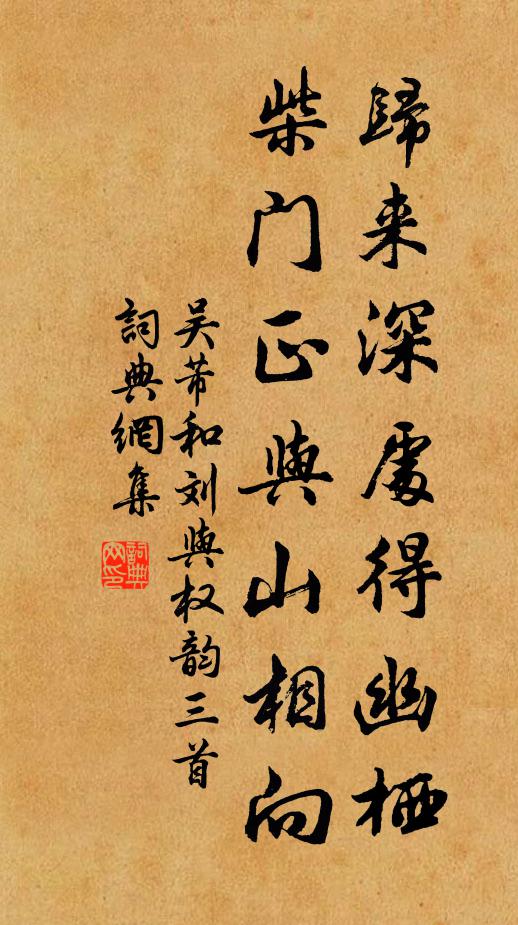 歸来深處得幽栖
柴门正與山相向
吴芾和刘與权韵三首
詞典網集
詞典网印